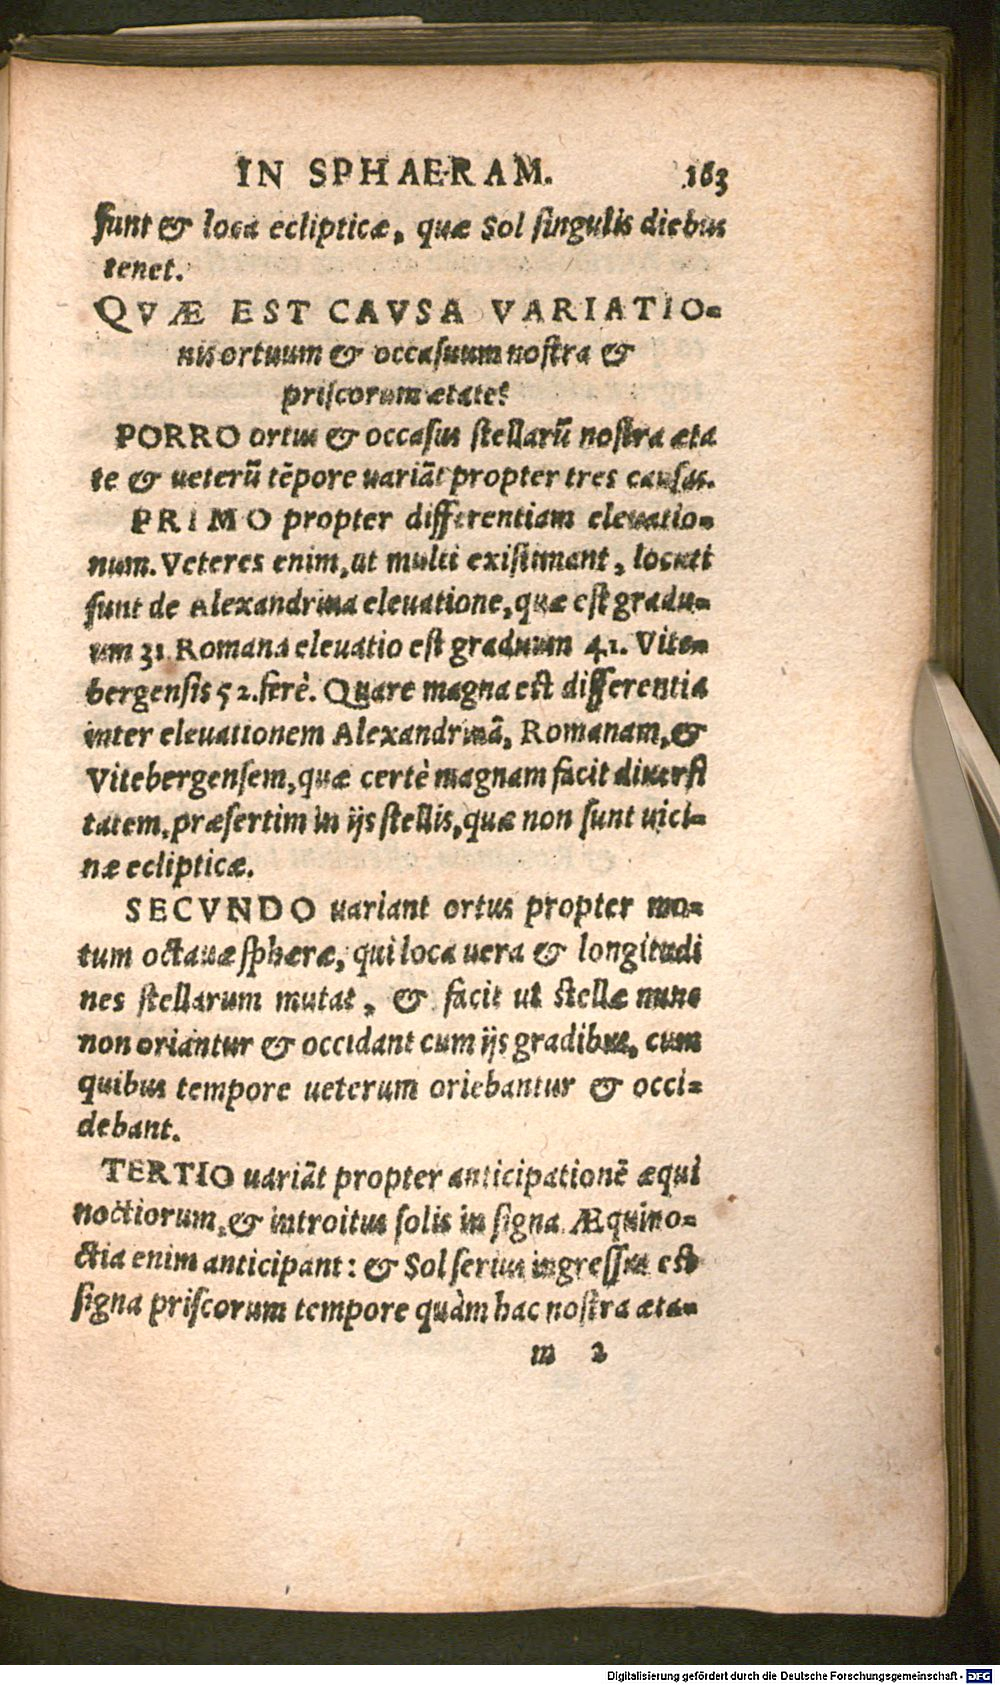 IN SPHAERAM. 163
sunt & loca eclipticæ, quæ Sol singulis diebus
tenet.
QVÆ EST CAVSA VARIATIO-
nis ortuum & occasuum nostra &
priscorum ætate?
PORRO ortus & occasus stellarũ nostra æta
te & ueterũ tẽpore uariãt propter tres causas.
PRIMO propter differentiam eleuatio-
num. Veteres enim, ut multi existimant, locuti
sunt de Alexandrina eleuatione, quæ est gradu-
um 31. Romana eleuatio est graduum 41. Vite-
bergensis 52. ferè. Quare magna est differentia
inter eleuationem Alexandrinã, Romanam, &
Vitebergensem, quæ certè magnam facit diuersi
tatem, præsertim in ijs stellis, quæ non sunt uici-
næ eclipticæ.
SECVNDO uariant ortus propter mo-
tum octauæ sphæræ, qui loca uera & longitudi
nes stellarum mutat, & facit ut stellæ nunc
non oriantur & occidant cum ijs gradibus, cum
quibus tempore ueterum oriebantur & occi-
debant.
TERTIO uariãt propter anticipationẽ æqui
noctiorum, & introitus solis in signa. Æquino-
ctia enim anticipant: & Sol serius ingressus est
signa priscorum tempore quàm hac nostra æta-
m 2
Digitalisierung gefördert durch die Deutsche Forschungsgemeinschaft - DFG